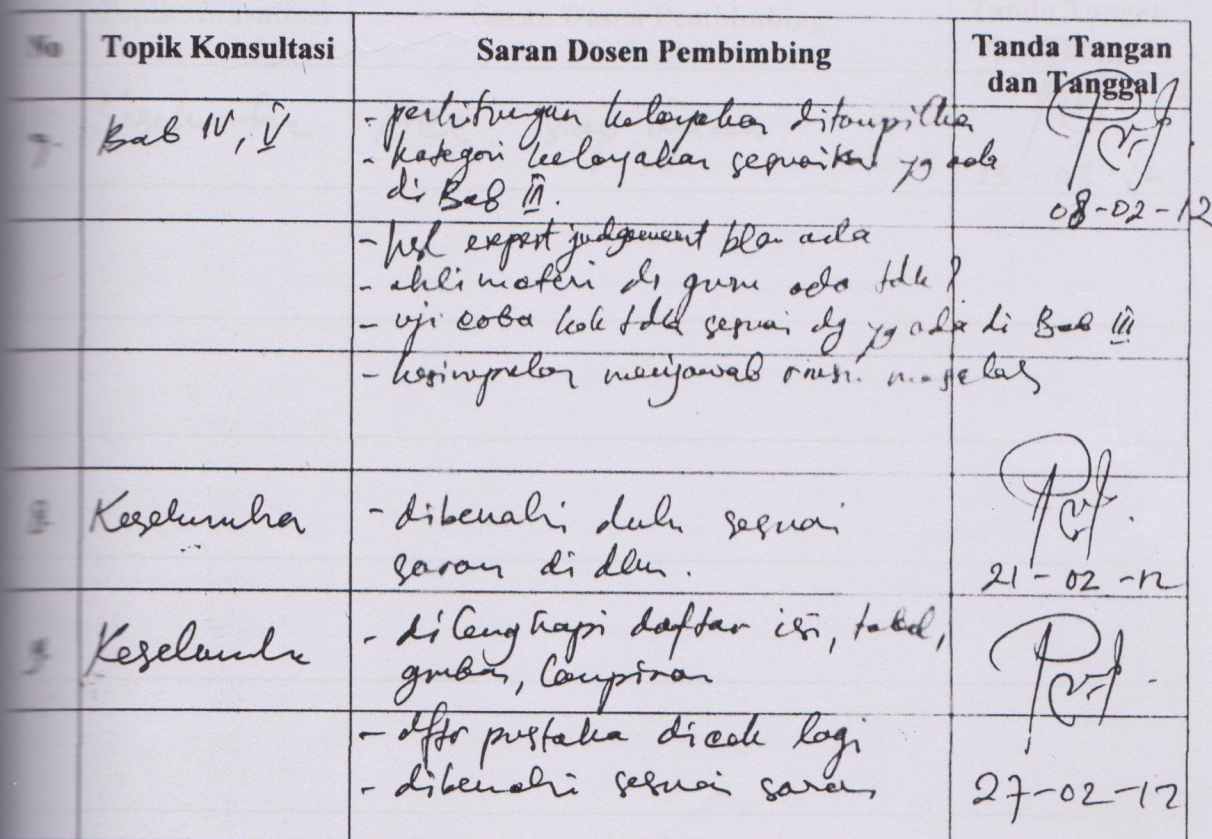 No Topik Konsultasi Saran Dosen Pembimbing Tanda Tangan
dan Tanggal
7 Bab IV, V - perhitungan kelayakan ditampilkan
- kategori kelayakan sesuaikan yg ada
di Bab III.
08-02-12
- hsl expert judgement blm ada
- ahli materi dr guru ada tdk?
- uji coba kok tdk sesuai dg yg ada di Bab III
- kesimpulan menjawab rmsn masalah
8 Keseluruhan - dibenahi dulu sesuai
saran di dlm.
21-02-12
9 Keseluruhan - dilengkapi daftar isi, tabel,
gambar, lampiran
- dftr pustaka dicek lagi
- dibenahi sesuai saran
27-02-12